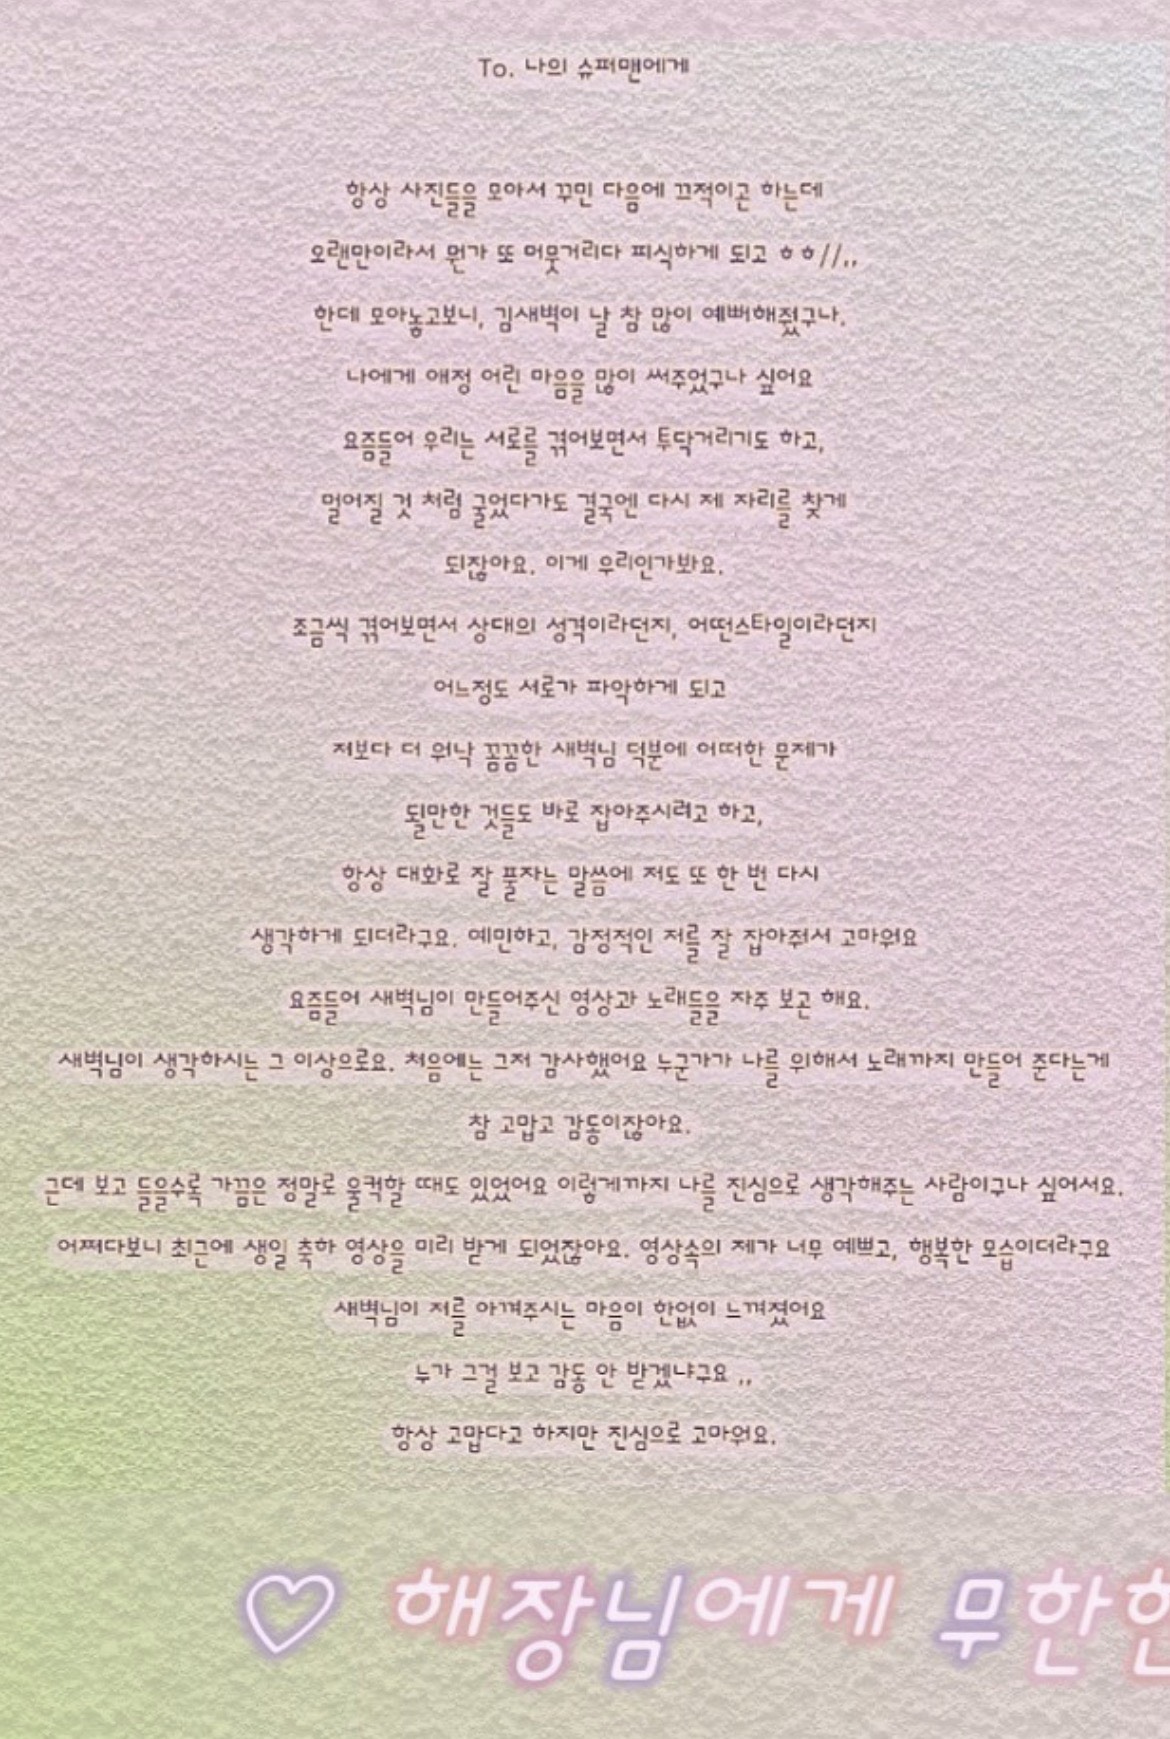 To. 나의 슈퍼맨에게
항상 사진들을 모아서 꾸민 다음에 끄적이곤 하는데
오랜만이라서 뭔가 또 머뭇거리다 피식하게 되고 ㅎㅎ//,,
한데 모아놓고보니, 김새벽이 날 참 많이 예뻐해줬구나.
나에게 애정 어린 마음을 많이 써주었구나 싶어요
요즘들어 우리는 서로를 겪어보면서 투닥거리기도 하고,
멀어질 것 처럼 굴었다가도 결국엔 다시 제 자리를 찾게
되잖아요. 이게 우리인가봐요.
조금씩 겪어보면서 상대의 성격이라던지, 어떤스타일이라던지
어느정도 서로가 파악하게 되고
저보다 더 워낙 꼼꼼한 새벽님 덕분에 어떠한 문제가
될만한 것들도 바로 잡아주시려고 하고,
항상 대화로 잘 풀자는 말씀에 저도 또 한 번 다시
생각하게 되더라구요. 예민하고, 감정적인 저를 잘 잡아줘서 고마워요
요즘들어 새벽님이 만들어주신 영상과 노래들을 자주 보곤 해요.
새벽님이 생각하시는 그 이상으로요. 처음에는 그저 감사했어요 누군가가 나를 위해서 노래까지 만들어 준다는게
참 고맙고 감동이잖아요.
근데 보고 들을수록 가끔은 정말로 울컥할 때도 있었어요 이렇게까지 나를 진심으로 생각해주는 사람이구나 싶어서요.
어쩌다보니 최근에 생일 축하 영상을 미리 받게 되었잖아요. 영상속의 제가 너무 예쁘고, 행복한 모습이더라구요
새벽님이 저를 아껴주시는 마음이 한없이 느껴졌어요
누가 그걸 보고 감동 안 받겠냐구요 ,,
항상 고맙다고 하지만 진심으로 고마워요.
♡ 해장님에게 무한한